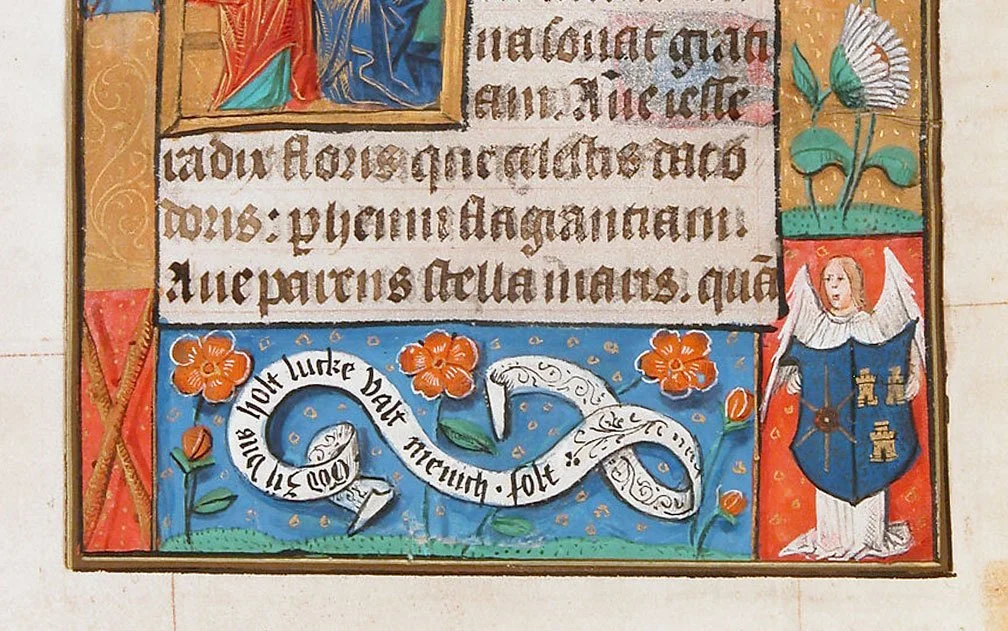 na fouat grati
am. Aue iesse
radix floris que celestis dat o
doris: ꝑhenni flagrantiam.
Aue parens stella maris. quā
God zij vns holt lucke valt menich · folt